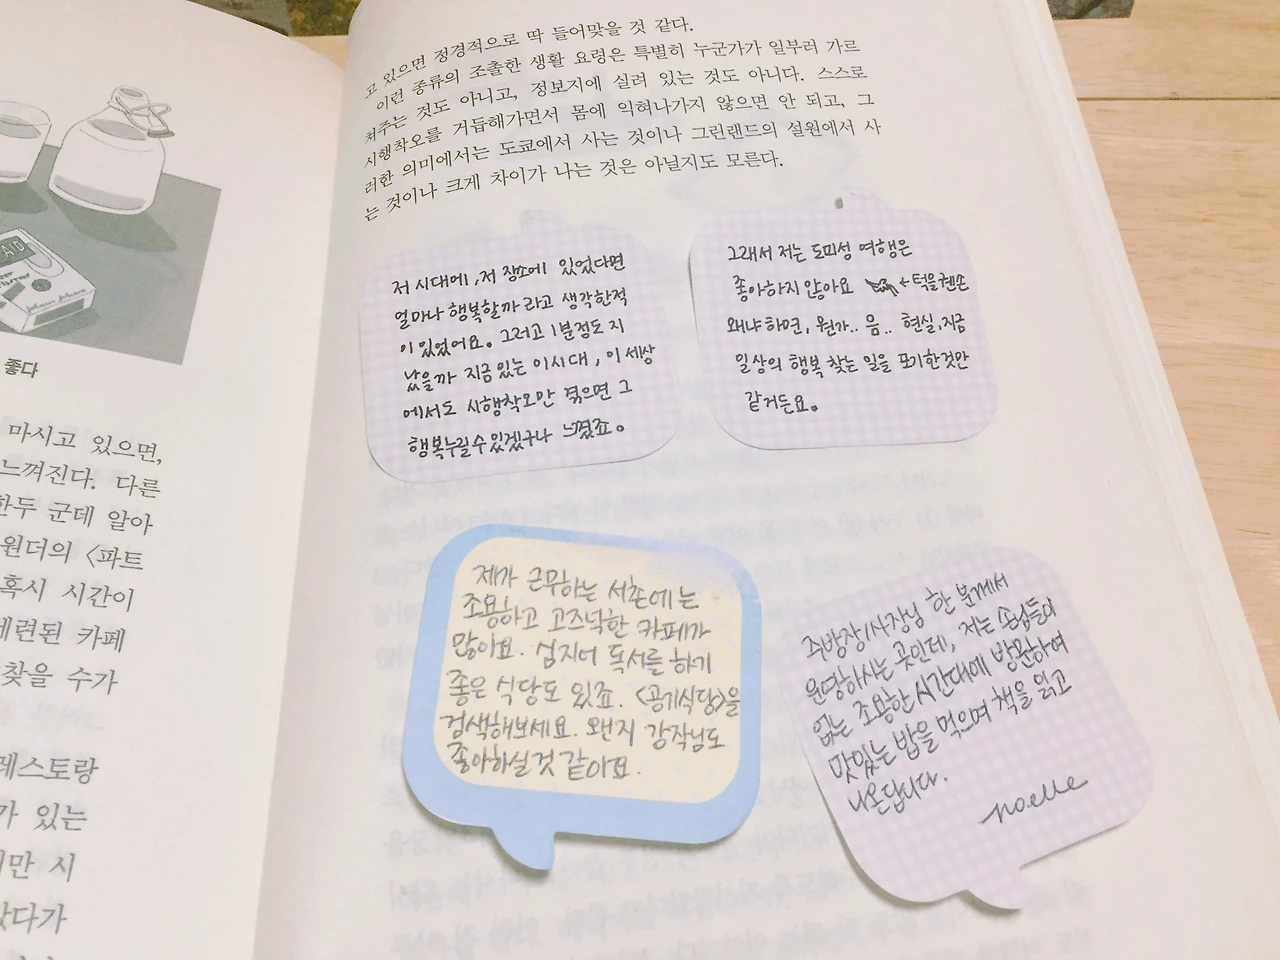 AID
Johnson & Johnson
좋다
마시고 있으면,
느껴진다. 다른
한두 군데 알아
원더의 <파트
혹시 시간이
세련된 카페
찾을 수가
레스토랑
가 있는
만 시
갔다가
고 있으면 정경적으로 딱 들어맞을 것 같다.
이런 종류의 조촐한 생활 요령은 특별히 누군가가 일부러 가르
쳐주는 것도 아니고, 정보지에 실려 있는 것도 아니다. 스스로
시행착오를 거듭해가면서 몸에 익혀나가지 않으면 안 되고, 그
러한 의미에서는 도쿄에서 사는 것이나 그린랜드의 설원에서 사
는 것이나 크게 차이가 나는 것은 아닐지도 모른다.
저 시대에, 저 장소에 있었다면
얼마나 행복할까 라고 생각한적
이 있었어요. 그러고 1분정도 지
났을까 지금 있는 이시대, 이 세상
에서도 시행착오만 겪으면 그
행복누릴수있겠구나 느꼈죠.
그래서 저는 도피성 여행은
좋아하지 않아요 ←턱을 괸 손
왜냐하면, 뭔가.. 음.. 현실, 지금
일상의 행복 찾는 일을 포기한것만
같거든요.
제가 근무하는 서촌에는
조용하고 고즈넉한 카페가
많아요. 심지어 독서를 하기
좋은 식당도 있죠. <공기식당>을
검색해보세요. 왠지 강작님도
좋아하실것 같아요.
주방장/사장님 한 분께서
운영하시는 곳인데, 저는 손님들이
없는 조용한 시간대에 방문하여
맛있는 밥을 먹으며 책을 읽고
나온답니다.
noelle